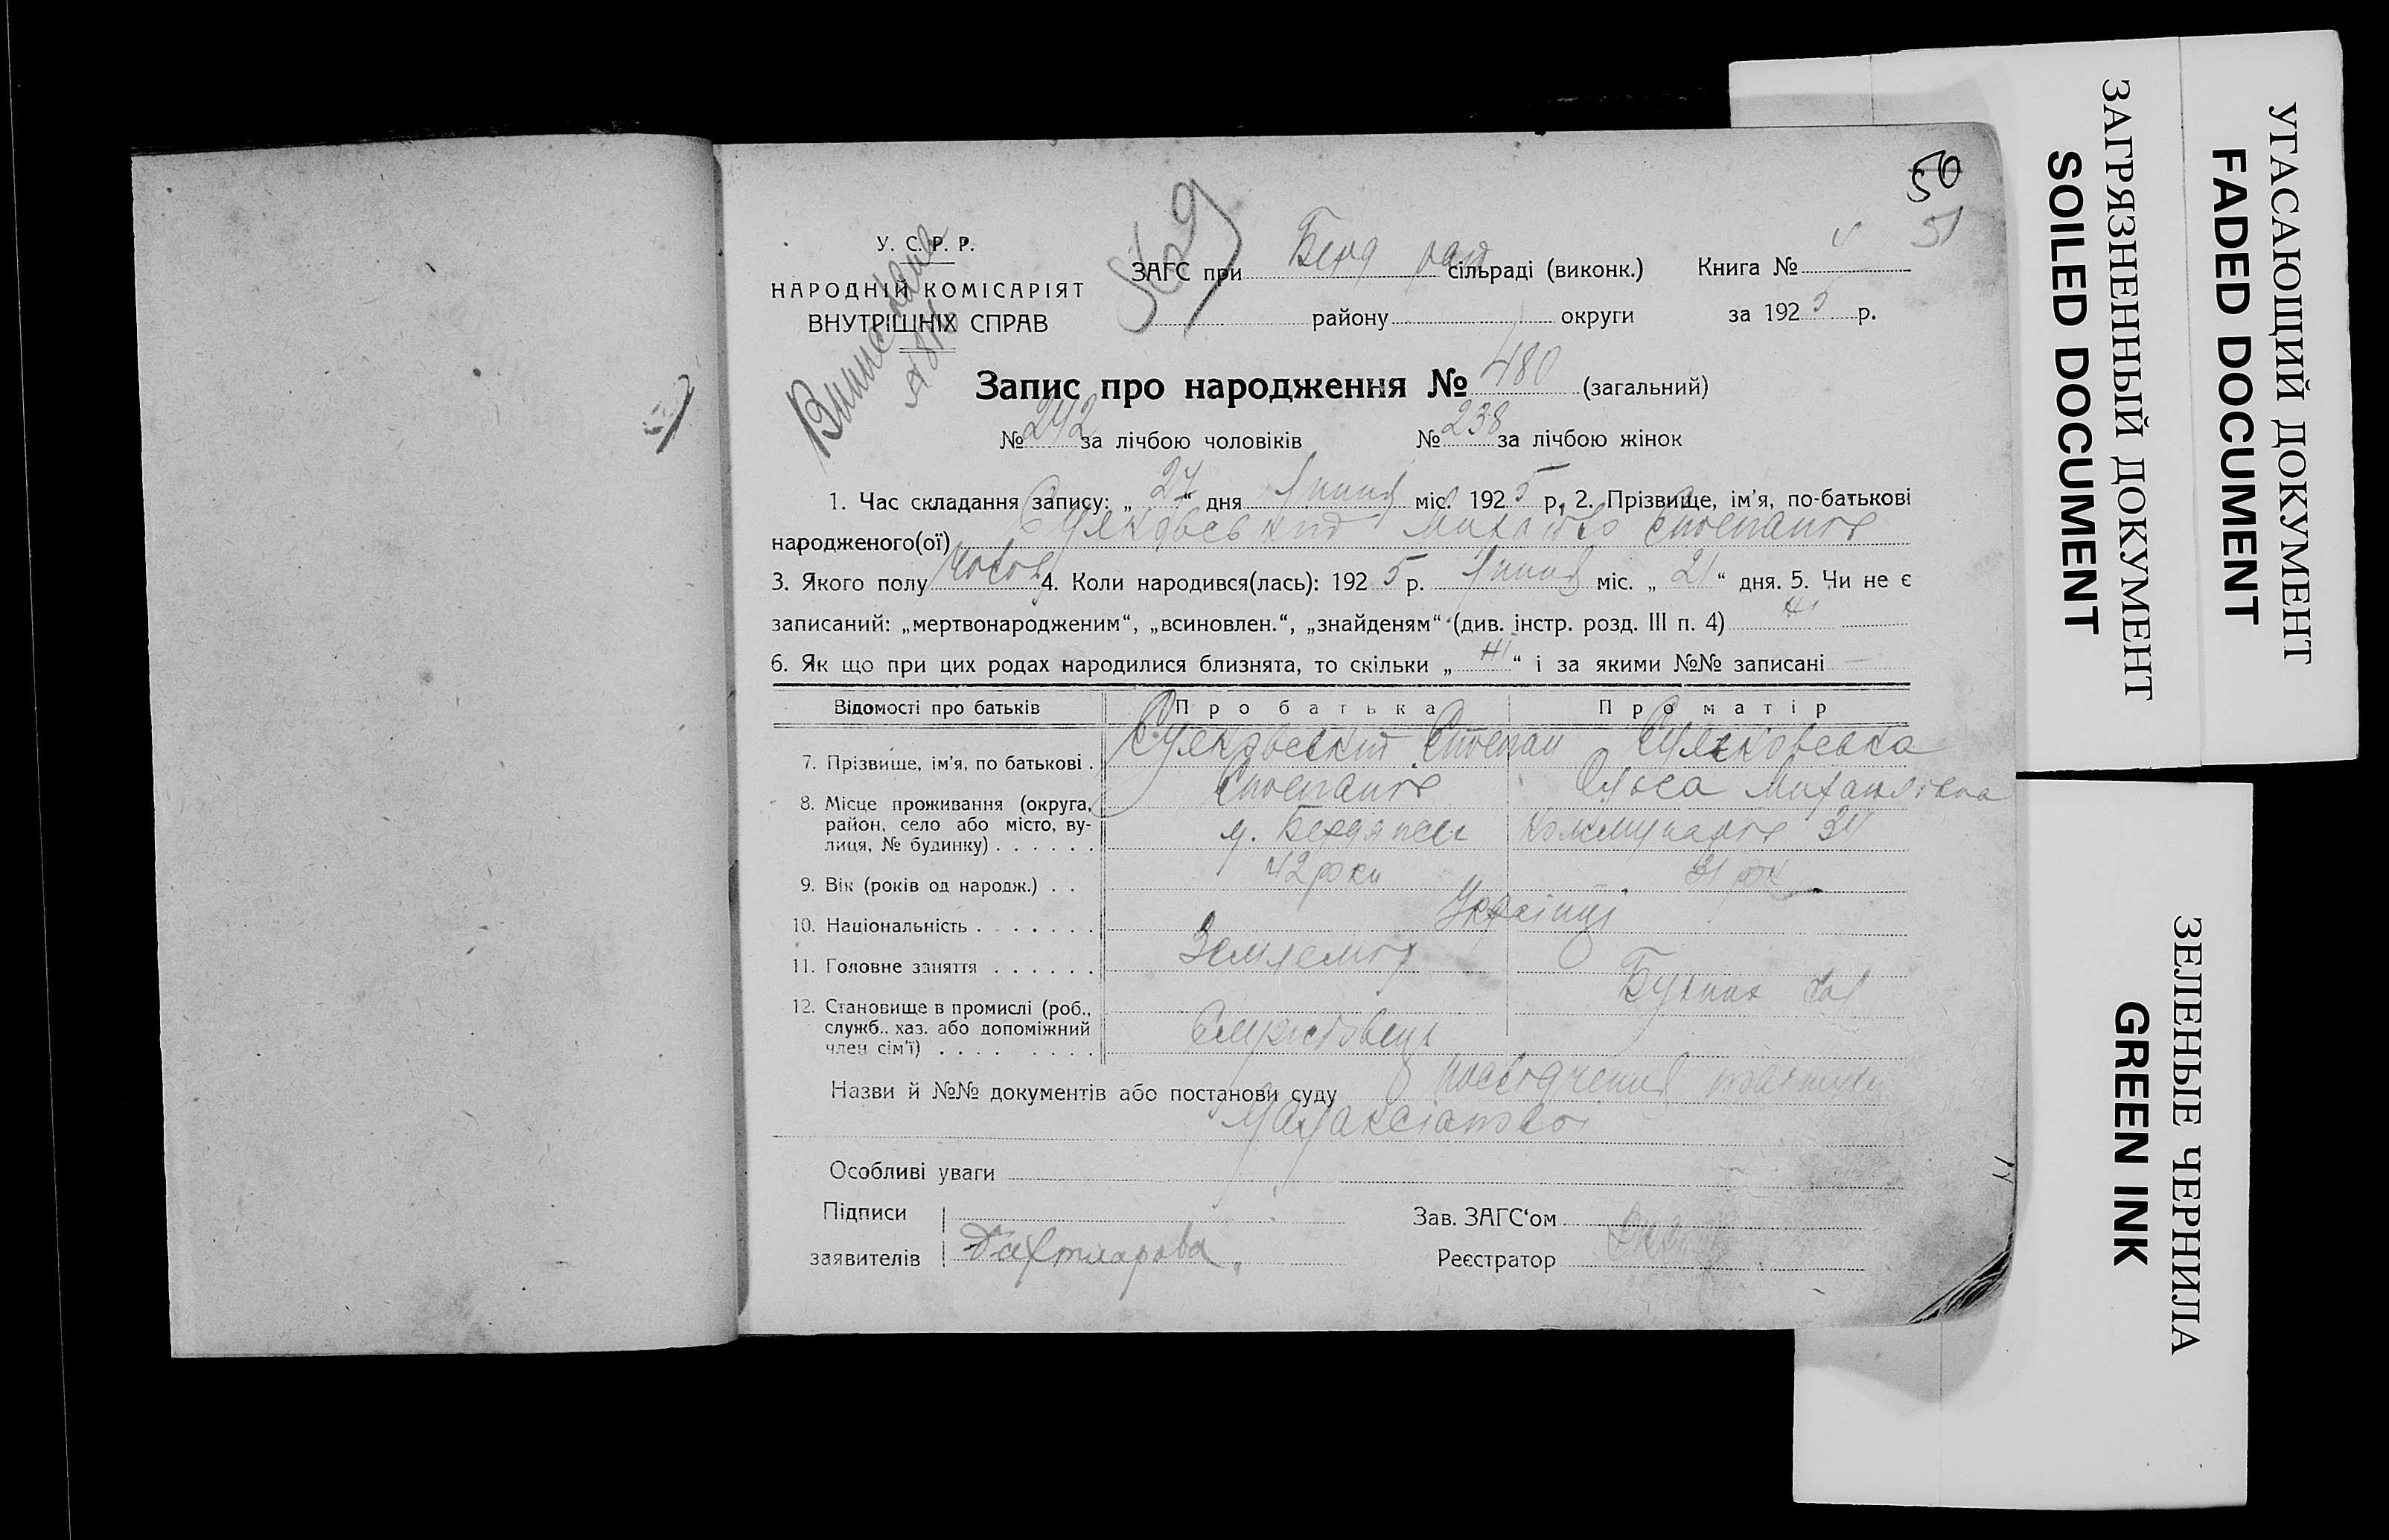 50
51
У. С. Р. Р.
НАРОДНІЙ КОМІСАРІЯТ
ВНУТРІШНІХ СПРАВ
569
ЗАГС при Берд рай сільраді (виконк.) Книга №
району округи за 1925 р.
Запис про народження № 480 (загальний)
№ 242 за лічбою чоловіків № 238 за лічбою жінок
1. Час складання запису: „ 27 “ дня липня міс. 1925 р. 2. Прізвище, ім'я, по-батькові
народженого(ої) Михайло Степанов
3. Якого полу чолов 4. Коли народився(лась): 1925 р. липня міс. „ 21 “ дня. 5. Чи не є
записаний: „мертвонародженим“, „всиновлен.“, „знайденям“ (див. інстр. розд. III п. 4) ні
6. Як що при цих родах народилися близнята, то скільки „ ні “ і за якими №№ записані —
Відомості про батьків Про батька Про матір
7. Прізвище, ім'я, по батькові . Степан
Степанов Михайлівна
8. Місце проживання (округа,
район, село або місто, ву-
лиця, № будинку) . . . . . . м. Бердянськ Коммунаров
9. Вік (років од народж.) . . 42 роки 31 рок
10. Національність . . . . . . . Українці
11. Головне заняття . . . . . . Землемір
12. Становище в промислі (роб.,
служб., хаз. або допоміжний
член сім'ї) . . . . . . . .
Назви й №№ документів або постанови суду посвідчення
Особливі уваги
Підписи Зав. ЗАГС'ом
заявителів Реєстратор
УГАСАЮЩИЙ ДОКУМЕНТ
FADED DOCUMENT
ЗАГРЯЗНЕННЫЙ ДОКУМЕНТ
SOILED DOCUMENT
ЗЕЛЕНЫЕ ЧЕРНИЛА
GREEN INK